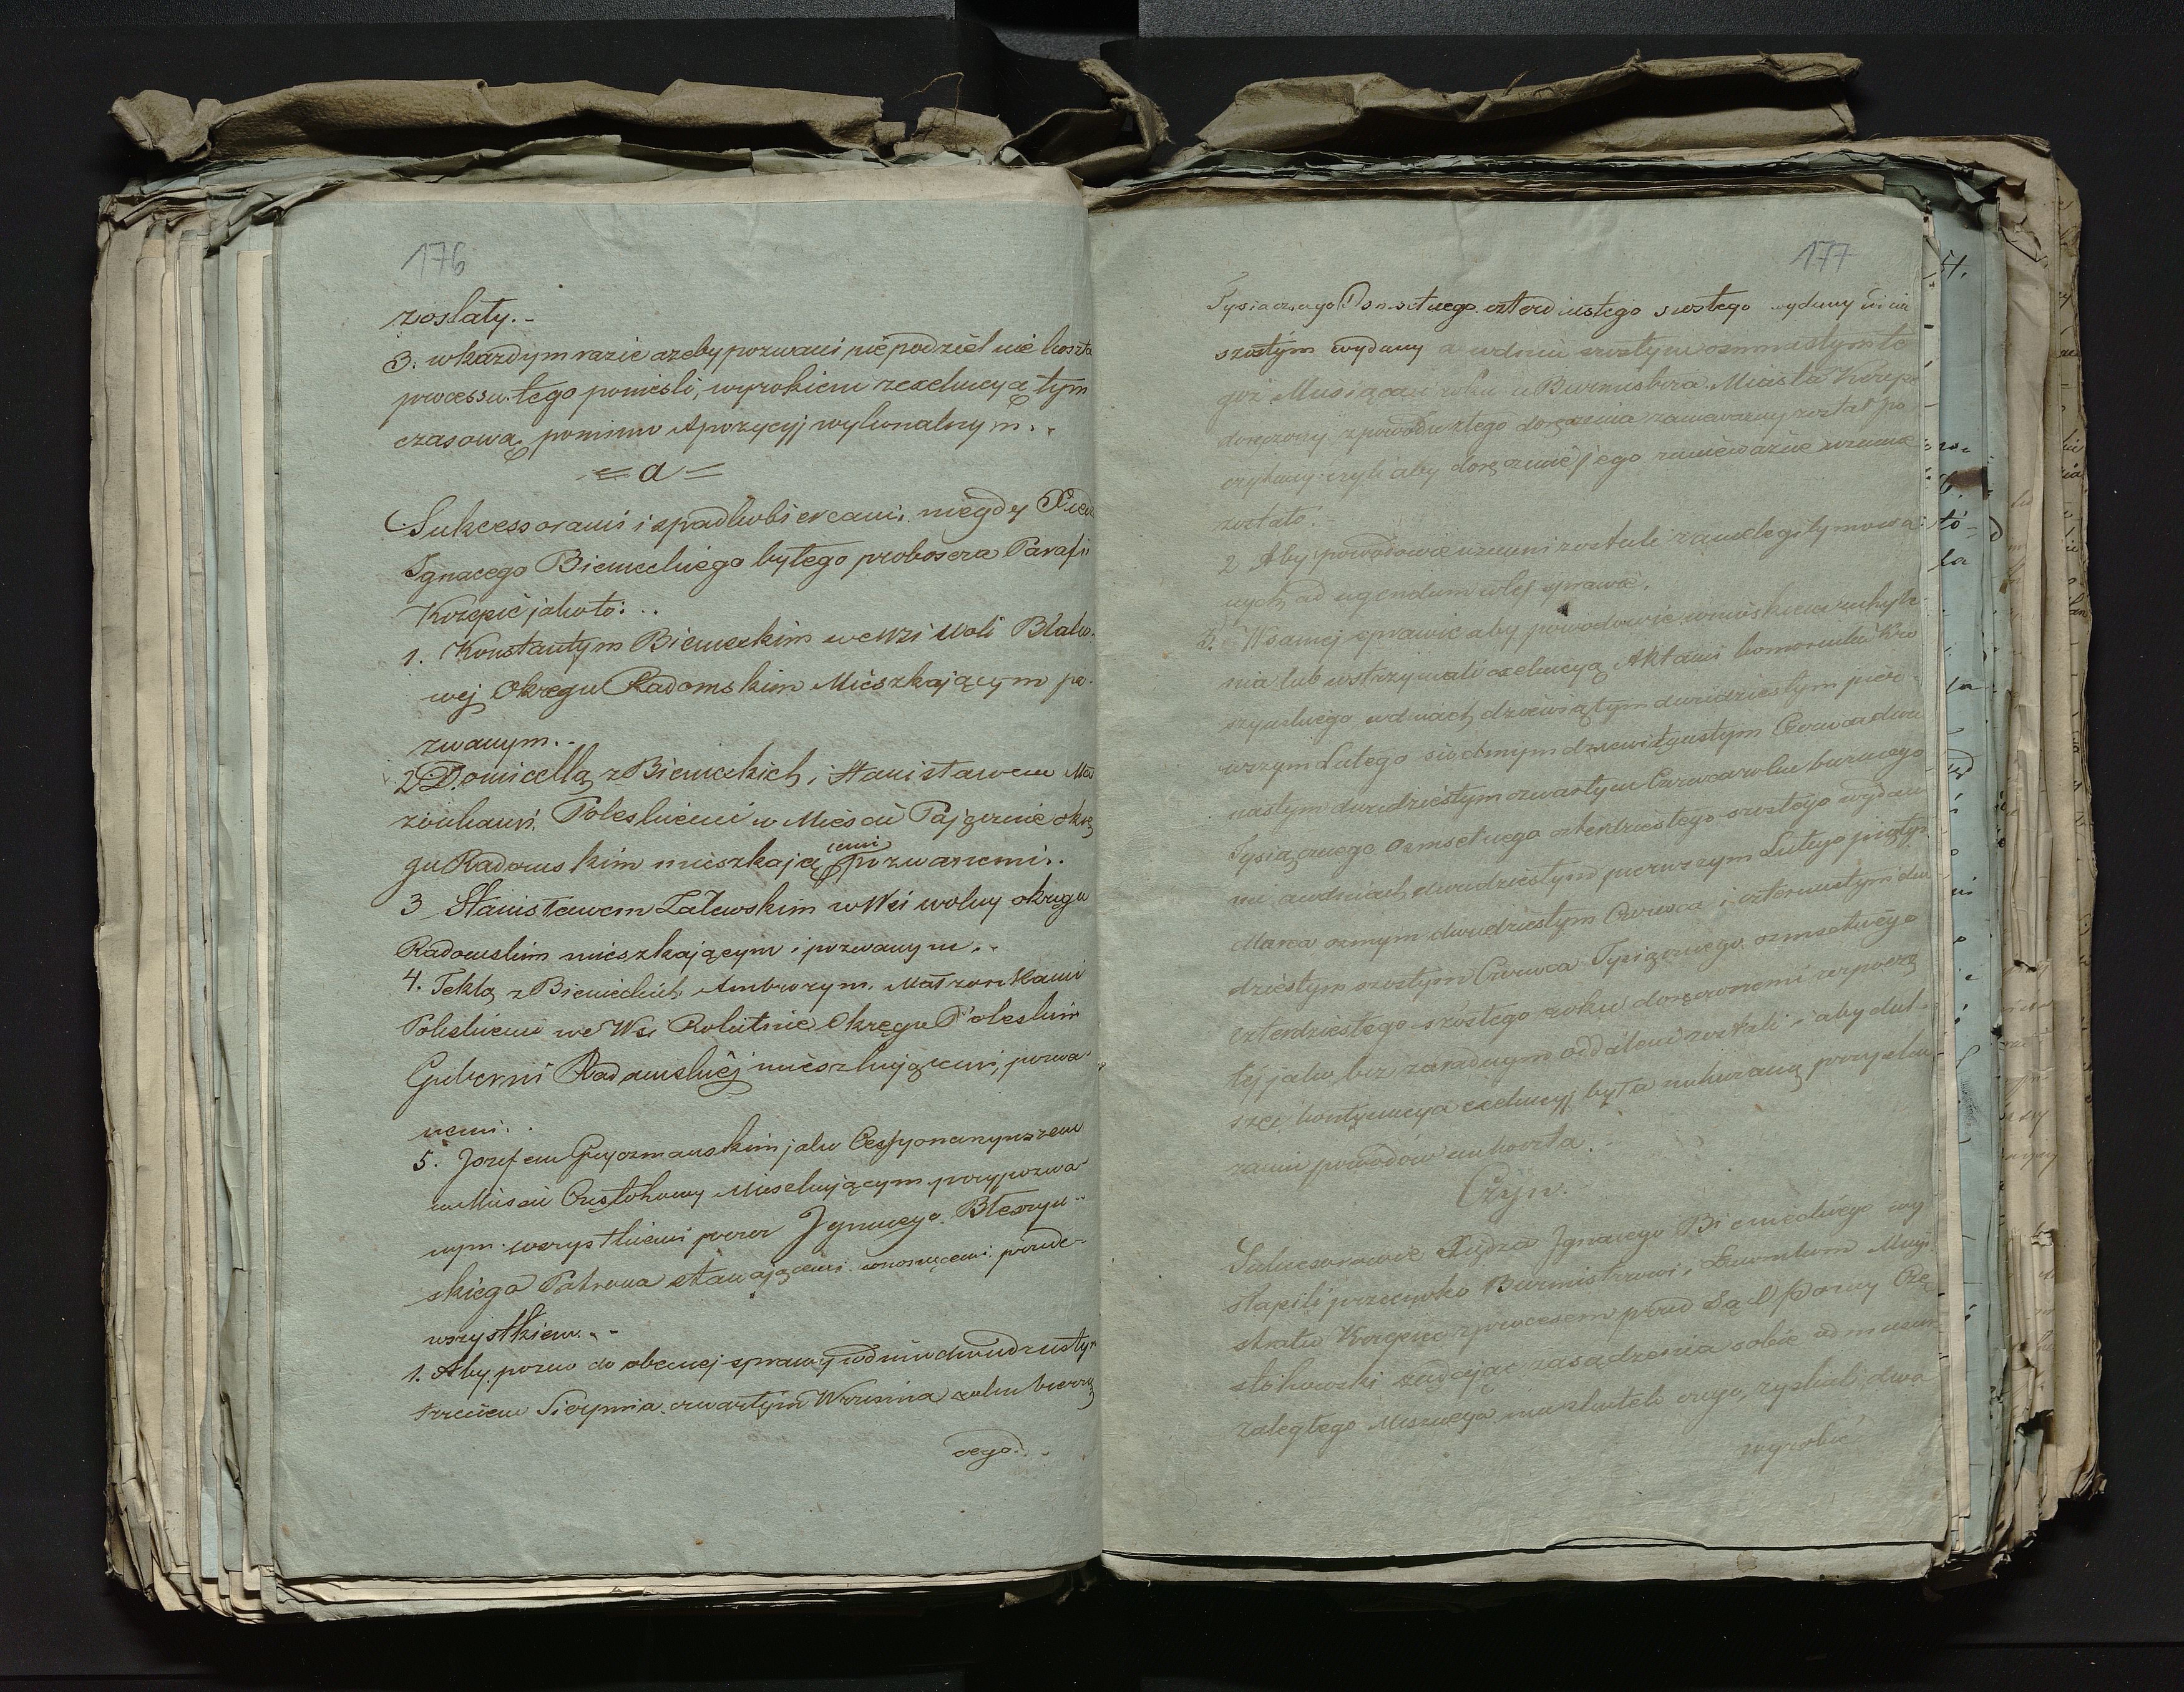 176
zostały.-
3. w każdym razie ażeby pozwani niepodzielnie koszta
processu tego ponieśli, wyrokiem zexekucyą tym
czasową pomimo Apozycyj wykonalnym..
= a =
Sukcessorami i spadkobiercami niegdy
Ignacego Biemeckiego byłego proboscza Parafii
Krzepic jakoto:..
1. Konstantym Biemeckim we wsi Woli
wej Okręgu Radomskim Mieszkającym po-
zwanym..
2 Domicellą z Biemeckich i Stanisławem Mał
żonkami Poleskiemi w Mieście Pajęcznie okrę
gu Radomskim mieszkają cemi pozwanemi..
3 Stanisławem Zalewskim w Wsi wolny okręgu
Radomskim mieszkającym i pozwanym..
4. Teklą z Biemeckich Ambrozym Małżonkami
Poleskiemi we Wsi Okręgu
Guberni Radomskiej mieszkającemi, pozwa-
nemi..
5. Jozefem jako Cessyonaryuszem
w Mieście Częstohowy Mieszkającym przypozwa-
nym wszystkiemi przez Ignacego Błeszyn-
skiego Patrona stawającemi wnoszącemi przede-
wszystkiem.-
1. Aby pozew do obecnej sprawy wdniu dwudziestym
trzecim Sierpnia czwartym Września roku bierzą
cego..
177
Tysiącznego Osmsetnego czterdziestego szostego wydany
szóstym wydany a wdniu szostym osmnastym te
goż Miesiąca i roku u Burmistrza Miasta Krzepic
doręczony z powodu złego doręczenia zaniewazny został po
czytany czyli aby doręczenie jego zaniewazne uznane
zostało.
2 Aby powodowie uznani zostali za nielegitymowa
nych ad agendum w tej sprawie.
3. W samej sprawie aby powodowie wnioskiem uchyle
nia lub wstrzymali exekucyą Aktami komornika Kra
szyńskiego w dniach dziewiątym dwudziestym pier-
wszym Lutego siodmym dziewiętnastym Czerwca dwu
nastym dwudziestym czwartym Czerwca roku
Tysiącznego Osmsetnego czterdziestego szostego wydane
mi a w dniach dwudziestym pierwszym Lutego piątym
Marca osmym dwudziestym Czerwca i czternastym dwu
dziestym szostym Czerwca Tysiącznego osmsetnego
czterdziestego szóstego roku doręczonemi
tej jako bez zasadnym oddaleni zostali i aby dal-
szej kontynuacya exekucyj była nakazaną przy
zaniu powodow na koszta.
Czyn.
Sukcesorowie Xiędza Ignacego Biemeckiego wy
stąpili przeciwko Burmistrzowi i Ławnikom Magi-
stratu Krzepic z procesem przed Sąd Pokoju Czę
stohowski żądając zasądzenia sobie od
zaległego Mesznego na skutek czego, zyskali dwa
wyroki